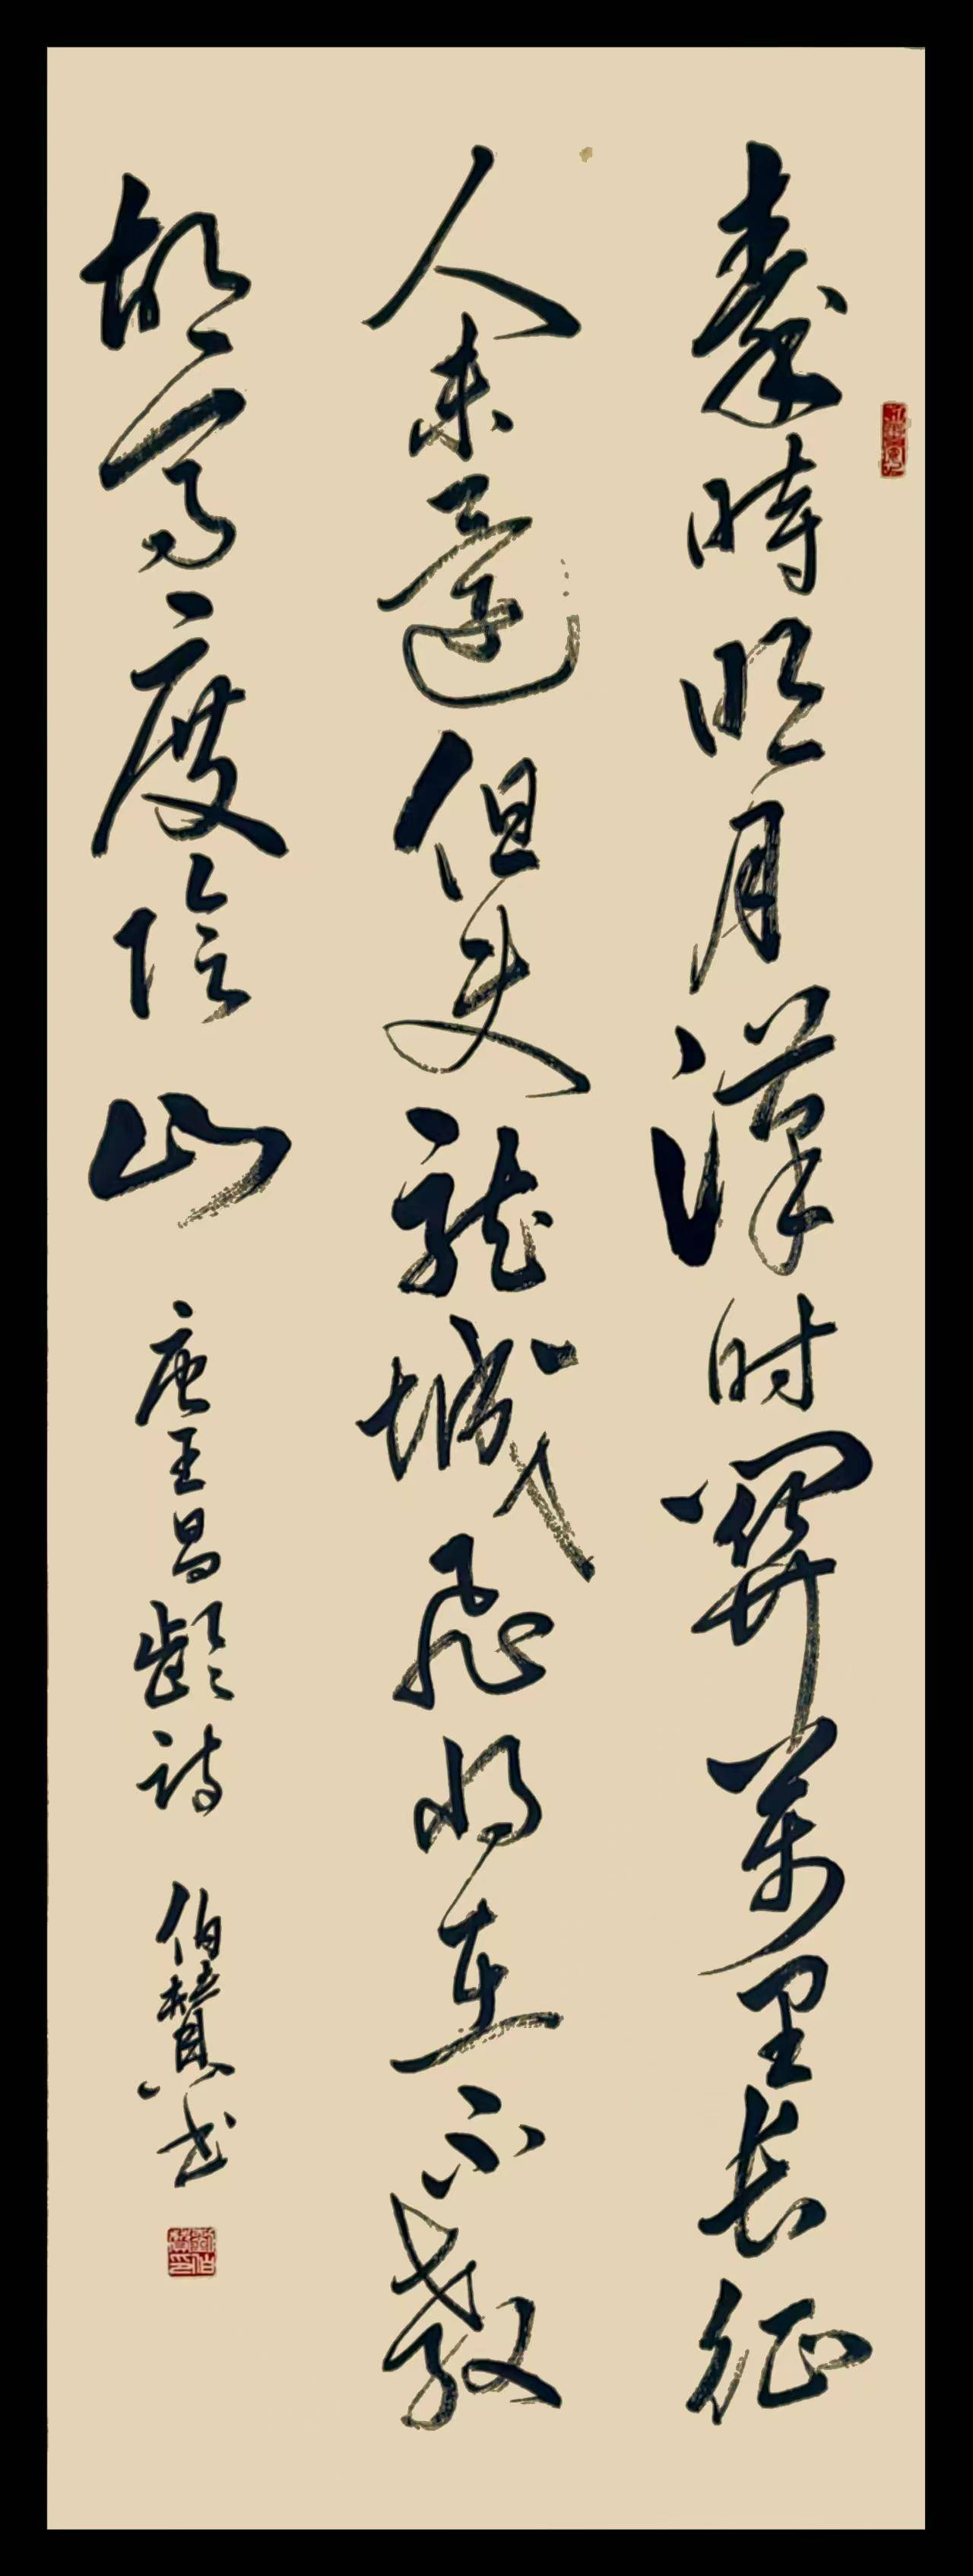 秦時明月漢时關萬里長征
人未還但使龍城飛將在不教
胡馬度陰山 唐王昌齡詩 伯贊书